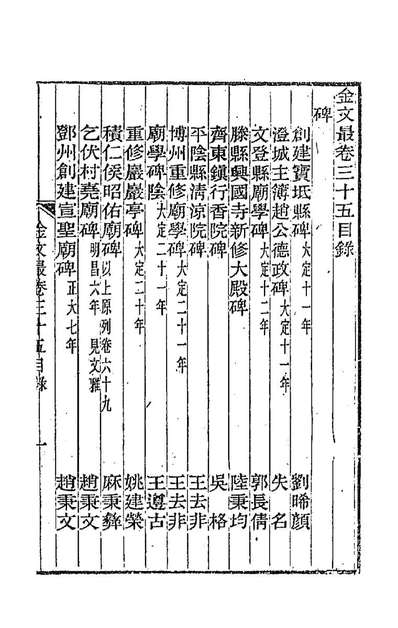 金文最卷三十五目錄
碑
創建寶坻縣碑大定十一年 劉晞顔
澄城主簿趙公德政碑大定十一年 失名
文登縣廟學碑大定十二年 郭長倩
滕縣興國寺新修大殿碑 陸秉均
齊東鎮行香院碑 吳格
平陰縣清涼院碑 王去非
博州重修廟學碑大定二十一年 王去非
廟學碑陰大定二十一年 王遵古
重修巖巖亭碑大定二十年 姚建榮
積仁侯昭佑廟碑以上原列卷六十九 麻秉彝
乞伏村堯廟碑明昌六年見文雅 趙秉文
鄧州創建宣聖廟碑正大七年 趙秉文
金文最卷三十五目錄 一